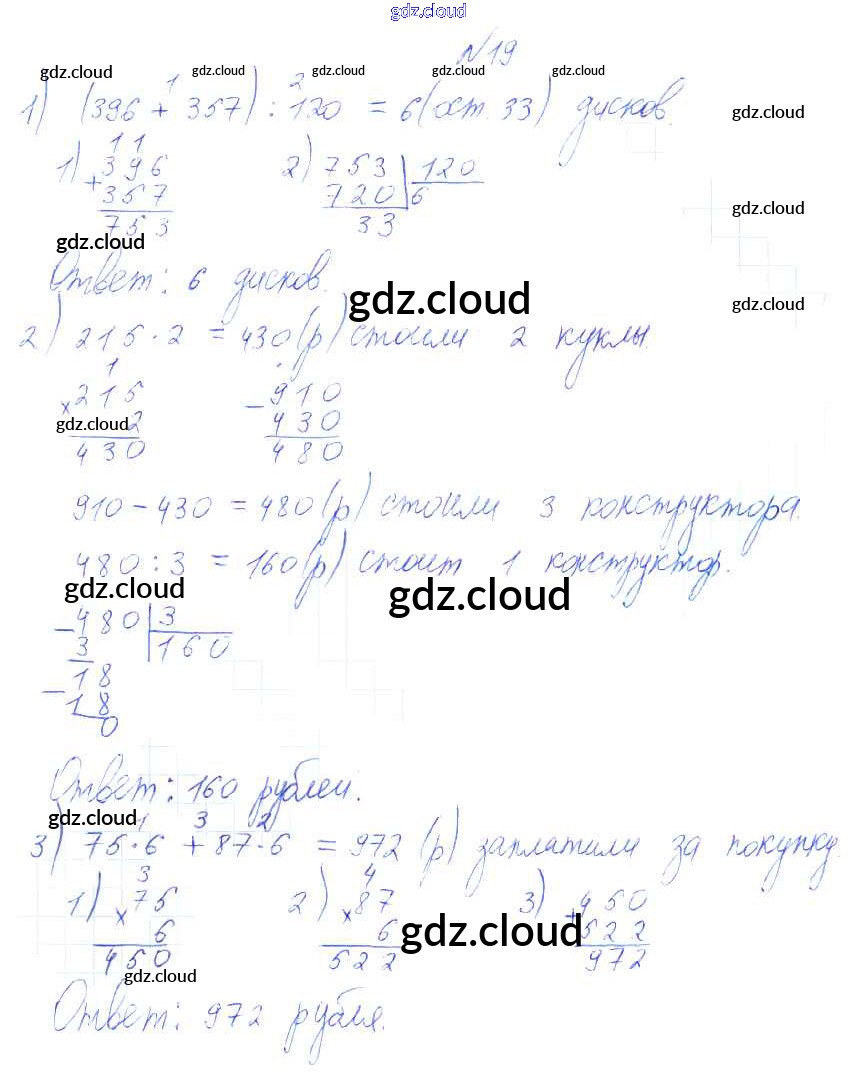 gdz.cloud
№19
gdz.cloud gdz.cloud gdz.cloud gdz.cloud gdz.cloud
1 2
1) (396 + 357) : 120 = 6 (ост. 33) дисков. gdz.cloud
1 1
1) 396 2) 753 | 120
+ 357 720 6
753 33
gdz.cloud gdz.cloud
Ответ: 6 дисков.
gdz.cloud gdz.cloud
2) 215 · 2 = 430 (р) стоили 2 куклы.
1 .
× 215 – 910
gdz.cloud 2 430
430 480
910 – 430 = 480 (р) стоили 3 конструктора.
480 : 3 = 160 (р) стоит 1 конструктор.
gdz.cloud gdz.cloud
– 480 | 3
3 160
– 18
18
0
Ответ: 160 рублей.
gdz.cloud 1 3 2
3) 75 · 6 + 87 · 6 = 972 (р) заплатили за покупку
3 4
1) × 75 2) × 87 3) + 450
6 6 gdz.cloud 522
450 522 972
gdz.cloud
Ответ: 972 рубля.